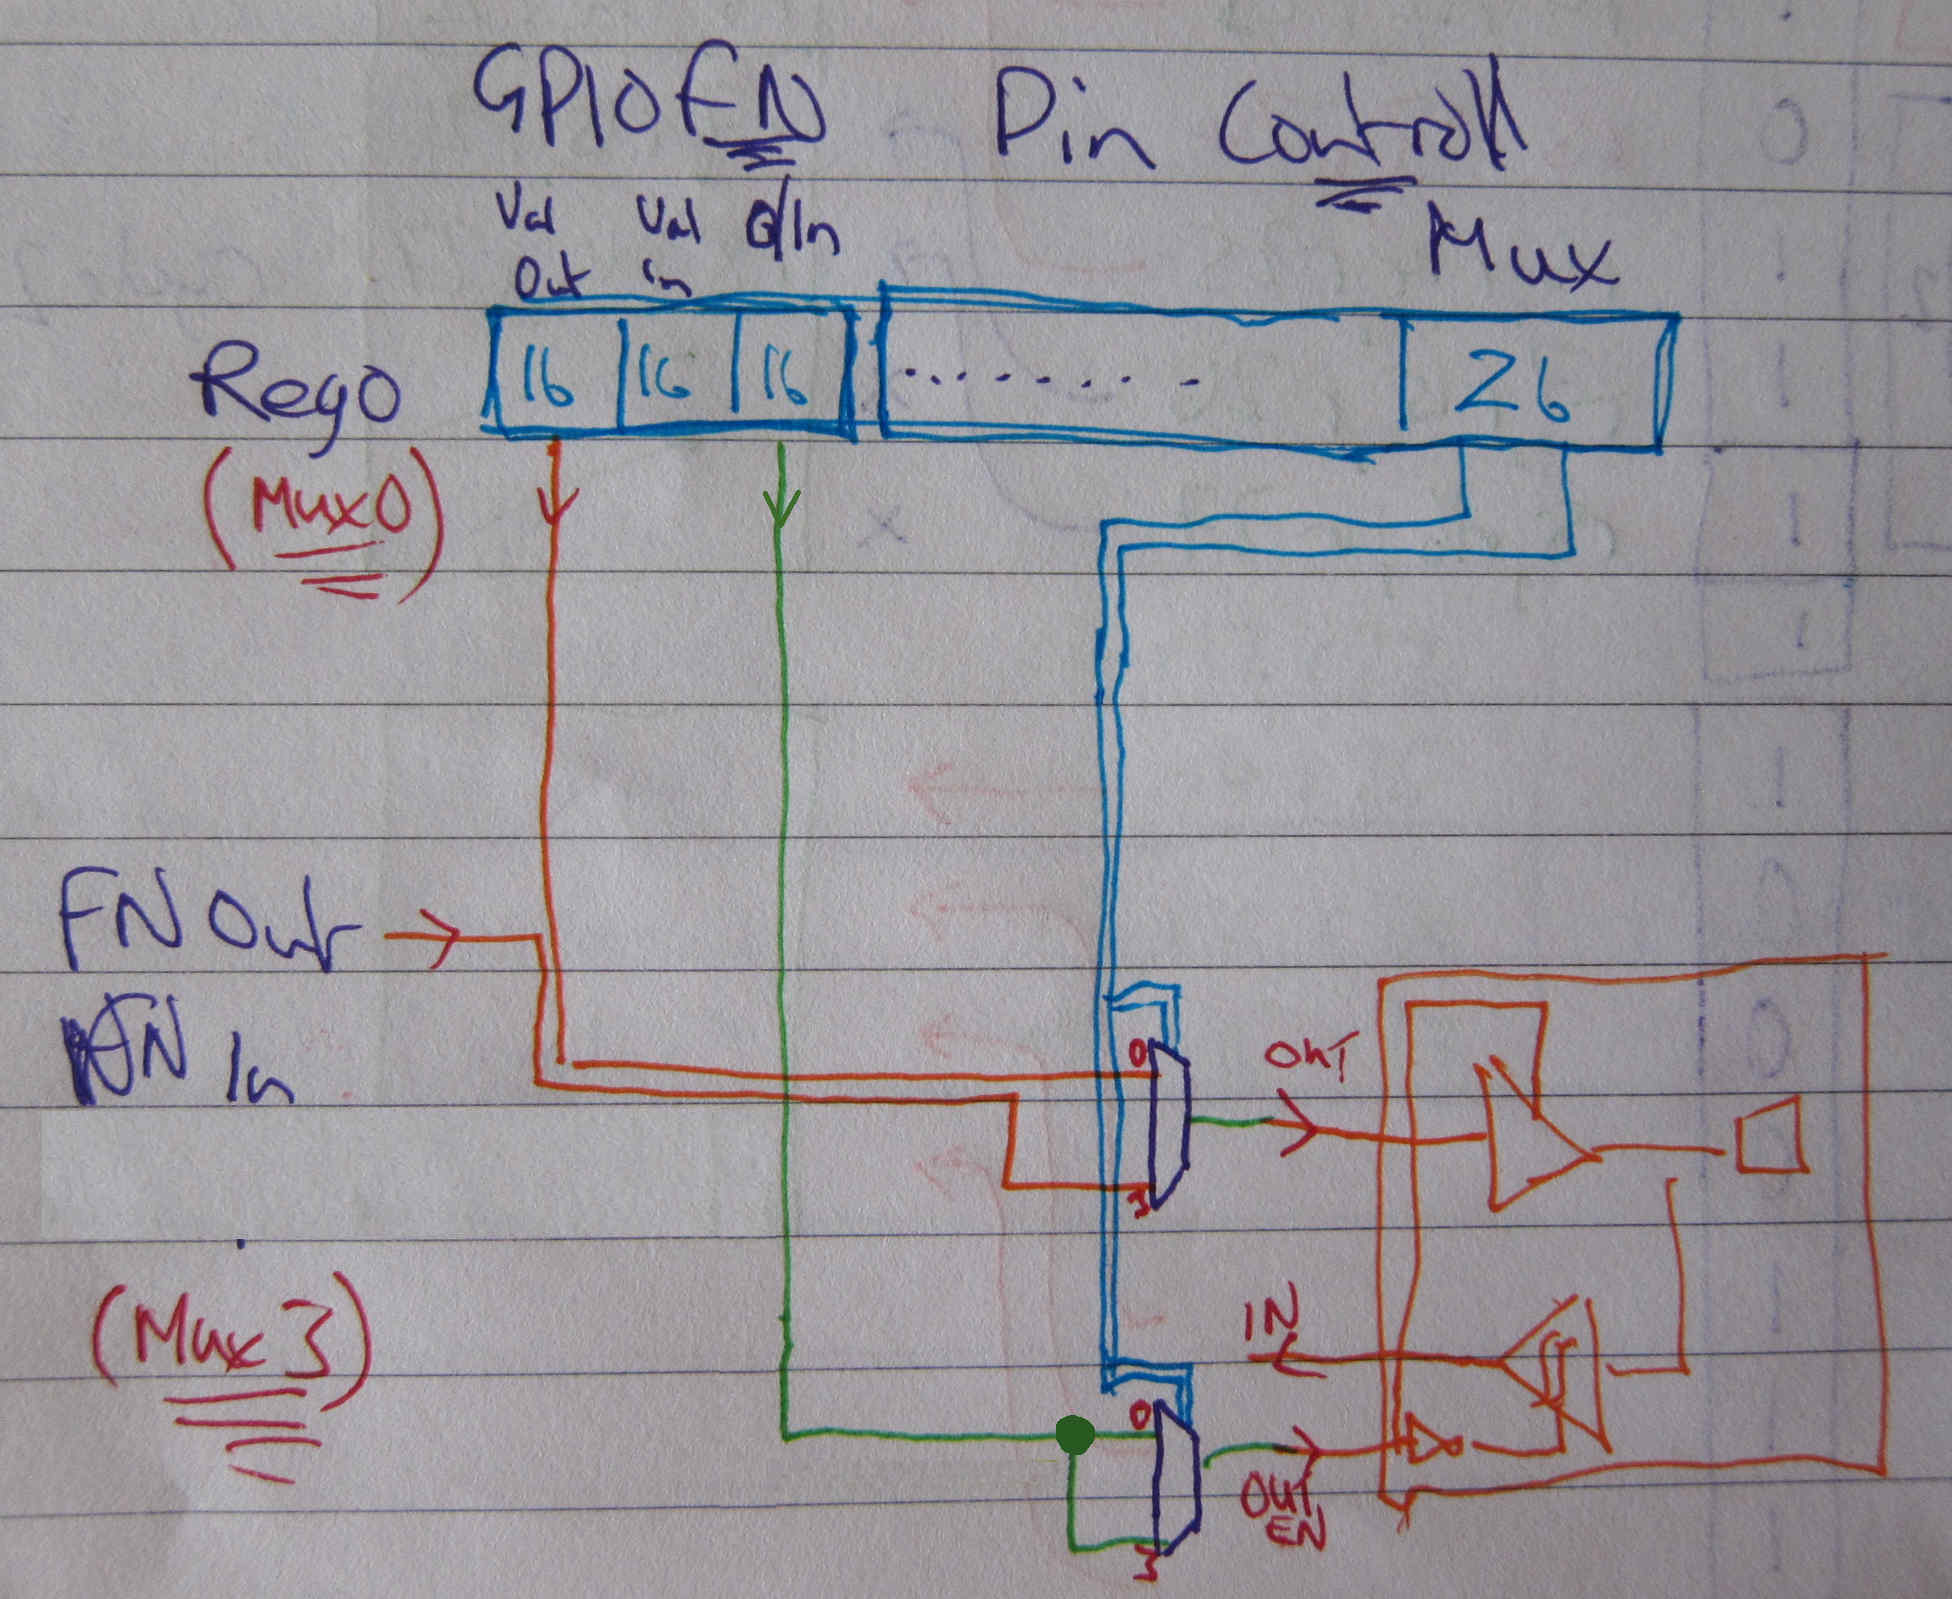 GPIO FN Pin Controll
Val Val O/In Mux
Out in
Reg0 16 16 16 ........ 26
(Mux0)
FN Out
FN In
0
OUT
3
IN
(Mux 3)
0
OUT
EN
3